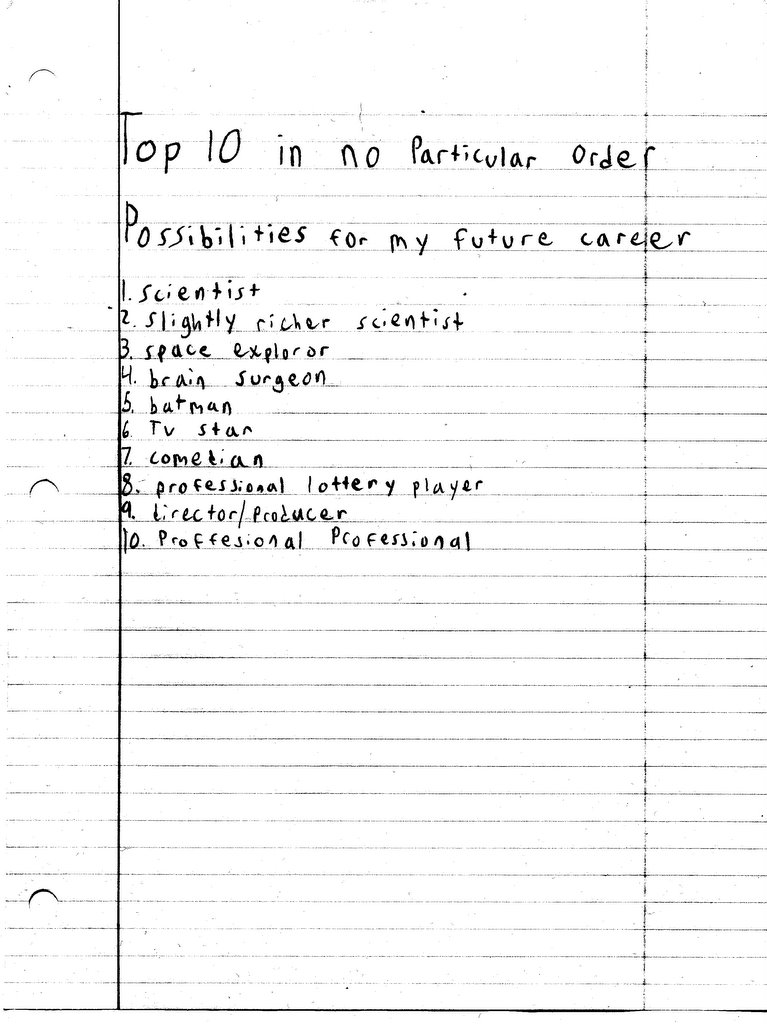 Top 10 in no Particular Order
Possibilities for my future career
1. scientist
2. slightly richer scientist
3. space exploror
4. brain surgeon
5. batman
6. Tv star
7. comedian
8. professional lottery player
9. director/Producer
10. Proffesional Professional